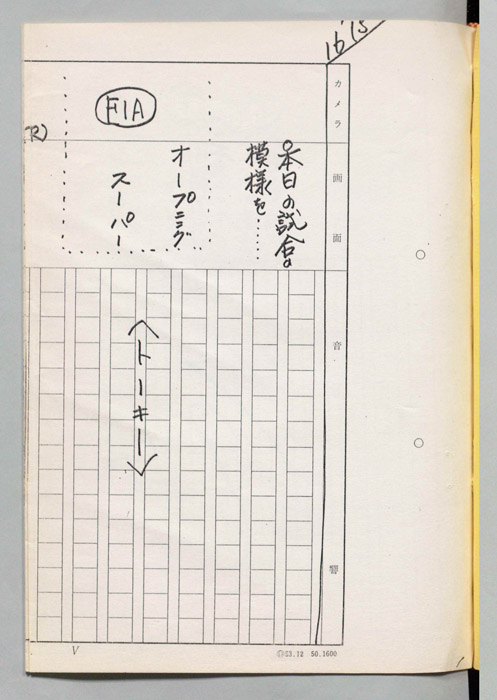 16'15
カメラ
画面
音響
○本日の試合の
模様を……
オープニング
スーパー
F1A
トーキー
V
53.12 50.1600